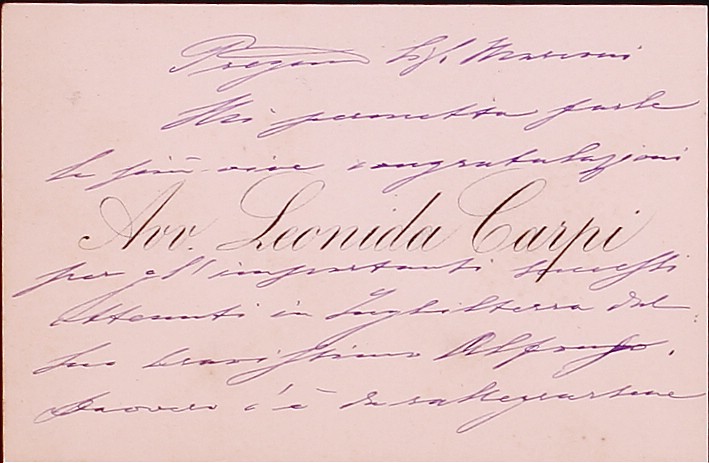 Pregmo Sigr Marconi
Mi permetta farle
le più vive congratulazioni
Avv. Leonida Carpi
per gl'importanti successi
ottenuti in Inghilterra dal
suo bravissimo Alfonso.
Davvero c'è da rallegrarsene